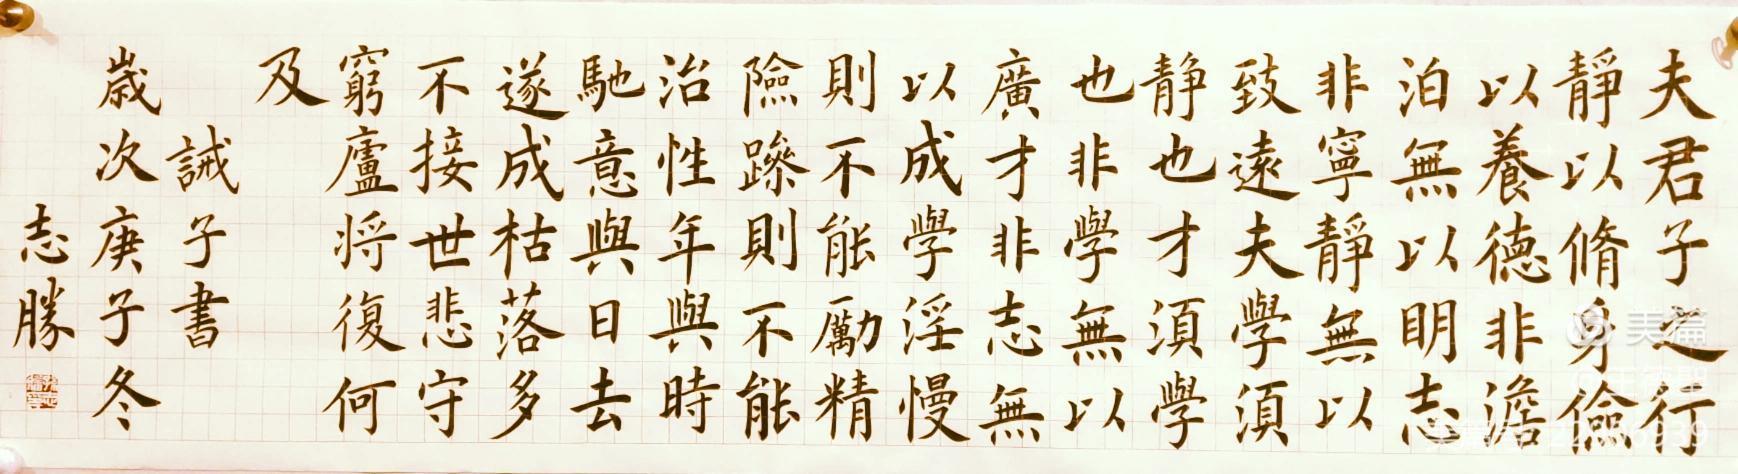 夫君子之行
靜以脩身儉
以養德非澹
泊無以明志
非寧靜無以
致遠夫學須
靜也才須學
也非學無以
廣才非志無
以成學淫慢
則不能勵精
險躁則不能
治性年與時
馳意與日去
遂成枯落多
不接世悲守
窮廬將復何
及
誡子書
歲次庚子冬
志勝
美篇
@王德聖